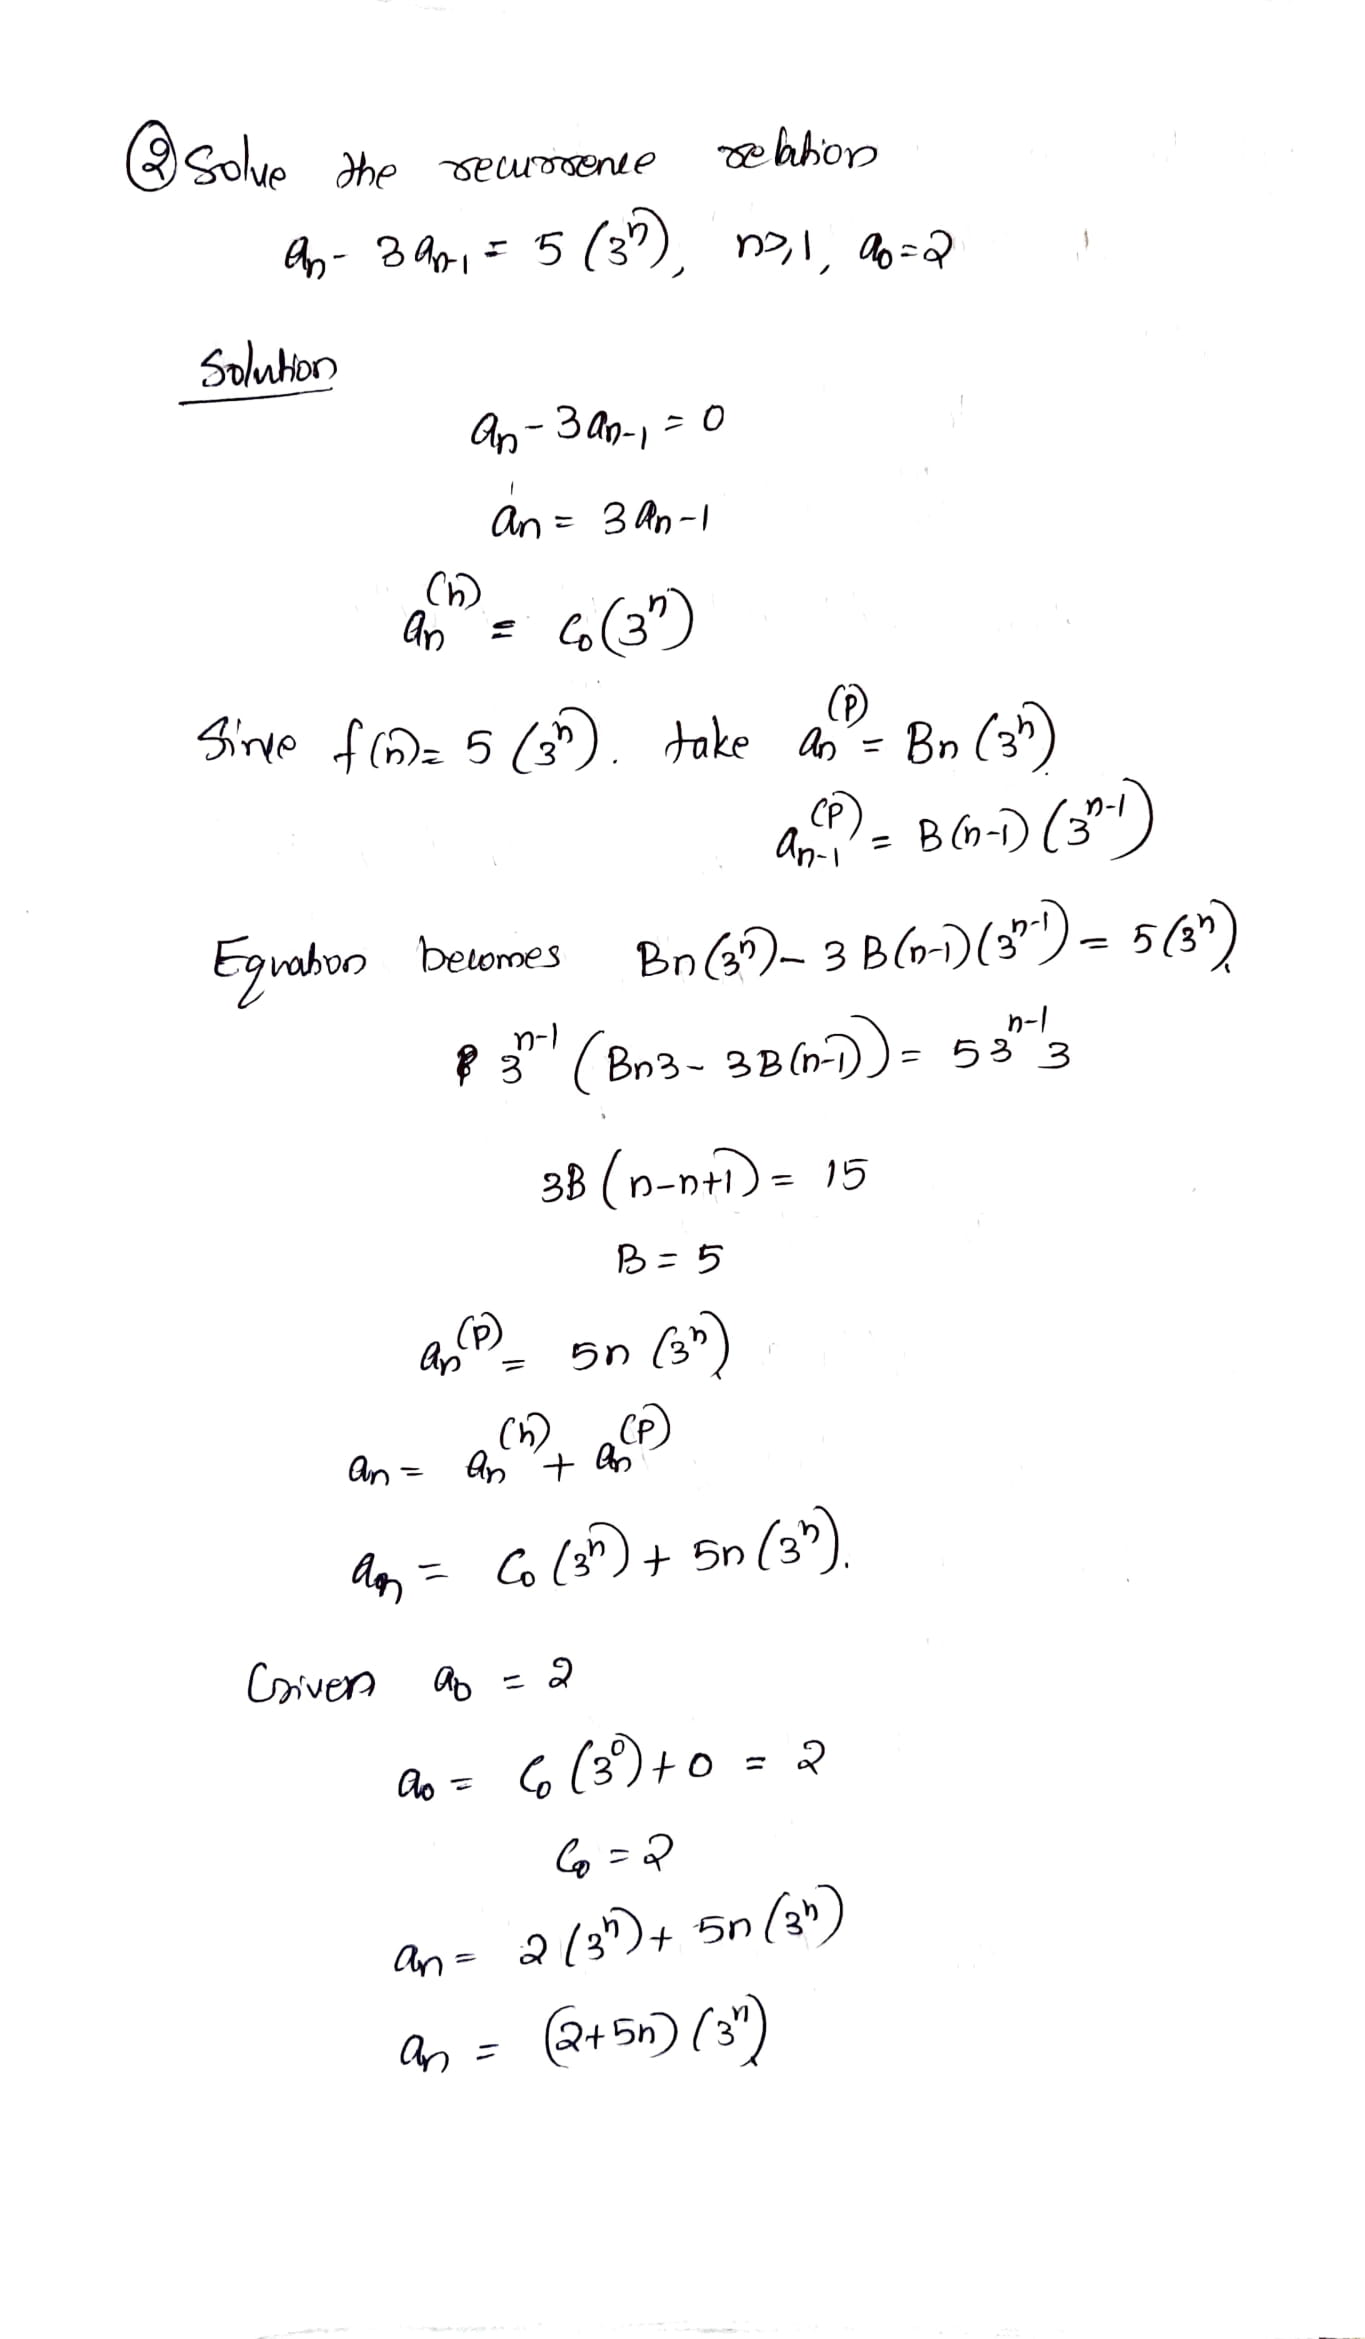 ② Solve the recurrence relation
aₙ - 3aₙ₋₁ = 5(3ⁿ), n≥1, a₀=2
Solution
aₙ - 3aₙ₋₁ = 0
aₙ = 3aₙ₋₁
aₙ⁽ʰ⁾ = C₀(3ⁿ)
Since f(n) = 5(3ⁿ). take aₙ⁽ᵖ⁾ = Bn(3ⁿ)
aₙ₋₁⁽ᵖ⁾ = B(n-1)(3ⁿ⁻¹)
Equation becomes Bn(3ⁿ) - 3B(n-1)(3ⁿ⁻¹) = 5(3ⁿ)
3ⁿ⁻¹(Bn3 - 3B(n-1)) = 5 3ⁿ⁻¹ 3
3B(n-n+1) = 15
B = 5
aₙ⁽ᵖ⁾ = 5n(3ⁿ)
aₙ = aₙ⁽ʰ⁾ + aₙ⁽ᵖ⁾
aₙ = C₀(3ⁿ) + 5n(3ⁿ).
Given a₀ = 2
a₀ = C₀(3⁰) + 0 = 2
C₀ = 2
aₙ = 2(3ⁿ) + 5n(3ⁿ)
aₙ = (2+5n)(3ⁿ)